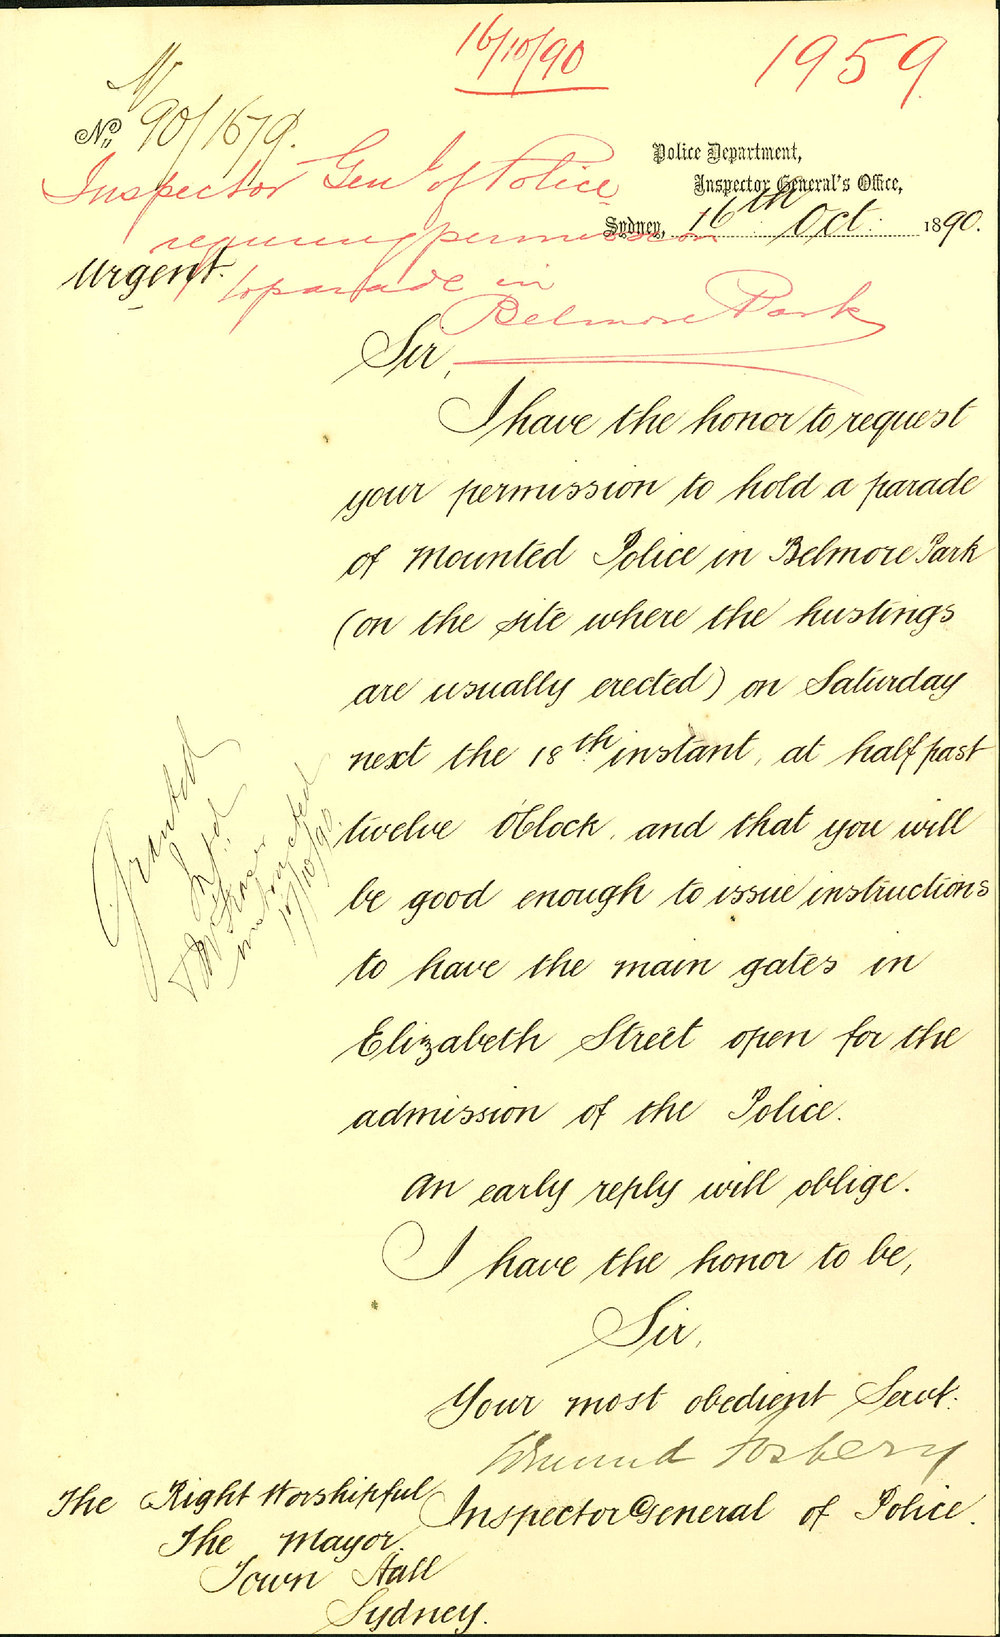 16/10/90
1959
M
No. 90/1679.
Police Department,
Inspector General's Office,
Sydney, 16th Oct. 1890.
Inspector Genl of Police
requiring permission
to parade in
Belmore Park
Urgent.
Sir,
I have the honor to request
your permission to hold a parade
of Mounted Police in Belmore Park
(on the site where the hustings
are usually erected) on Saturday
next the 18th instant, at half past
twelve O'Clock, and that you will
be good enough to issue instructions
to have the main gates in
Elizabeth Street open for the
admission of the Police.
An early reply will oblige.
I have the honor to be,
Sir,
Your most obedient Servt.
Edmund Fosbery
Inspector General of Police.
The Right Worshipful
The Mayor.
Town Hall
Sydney.
Granted
17/10/90